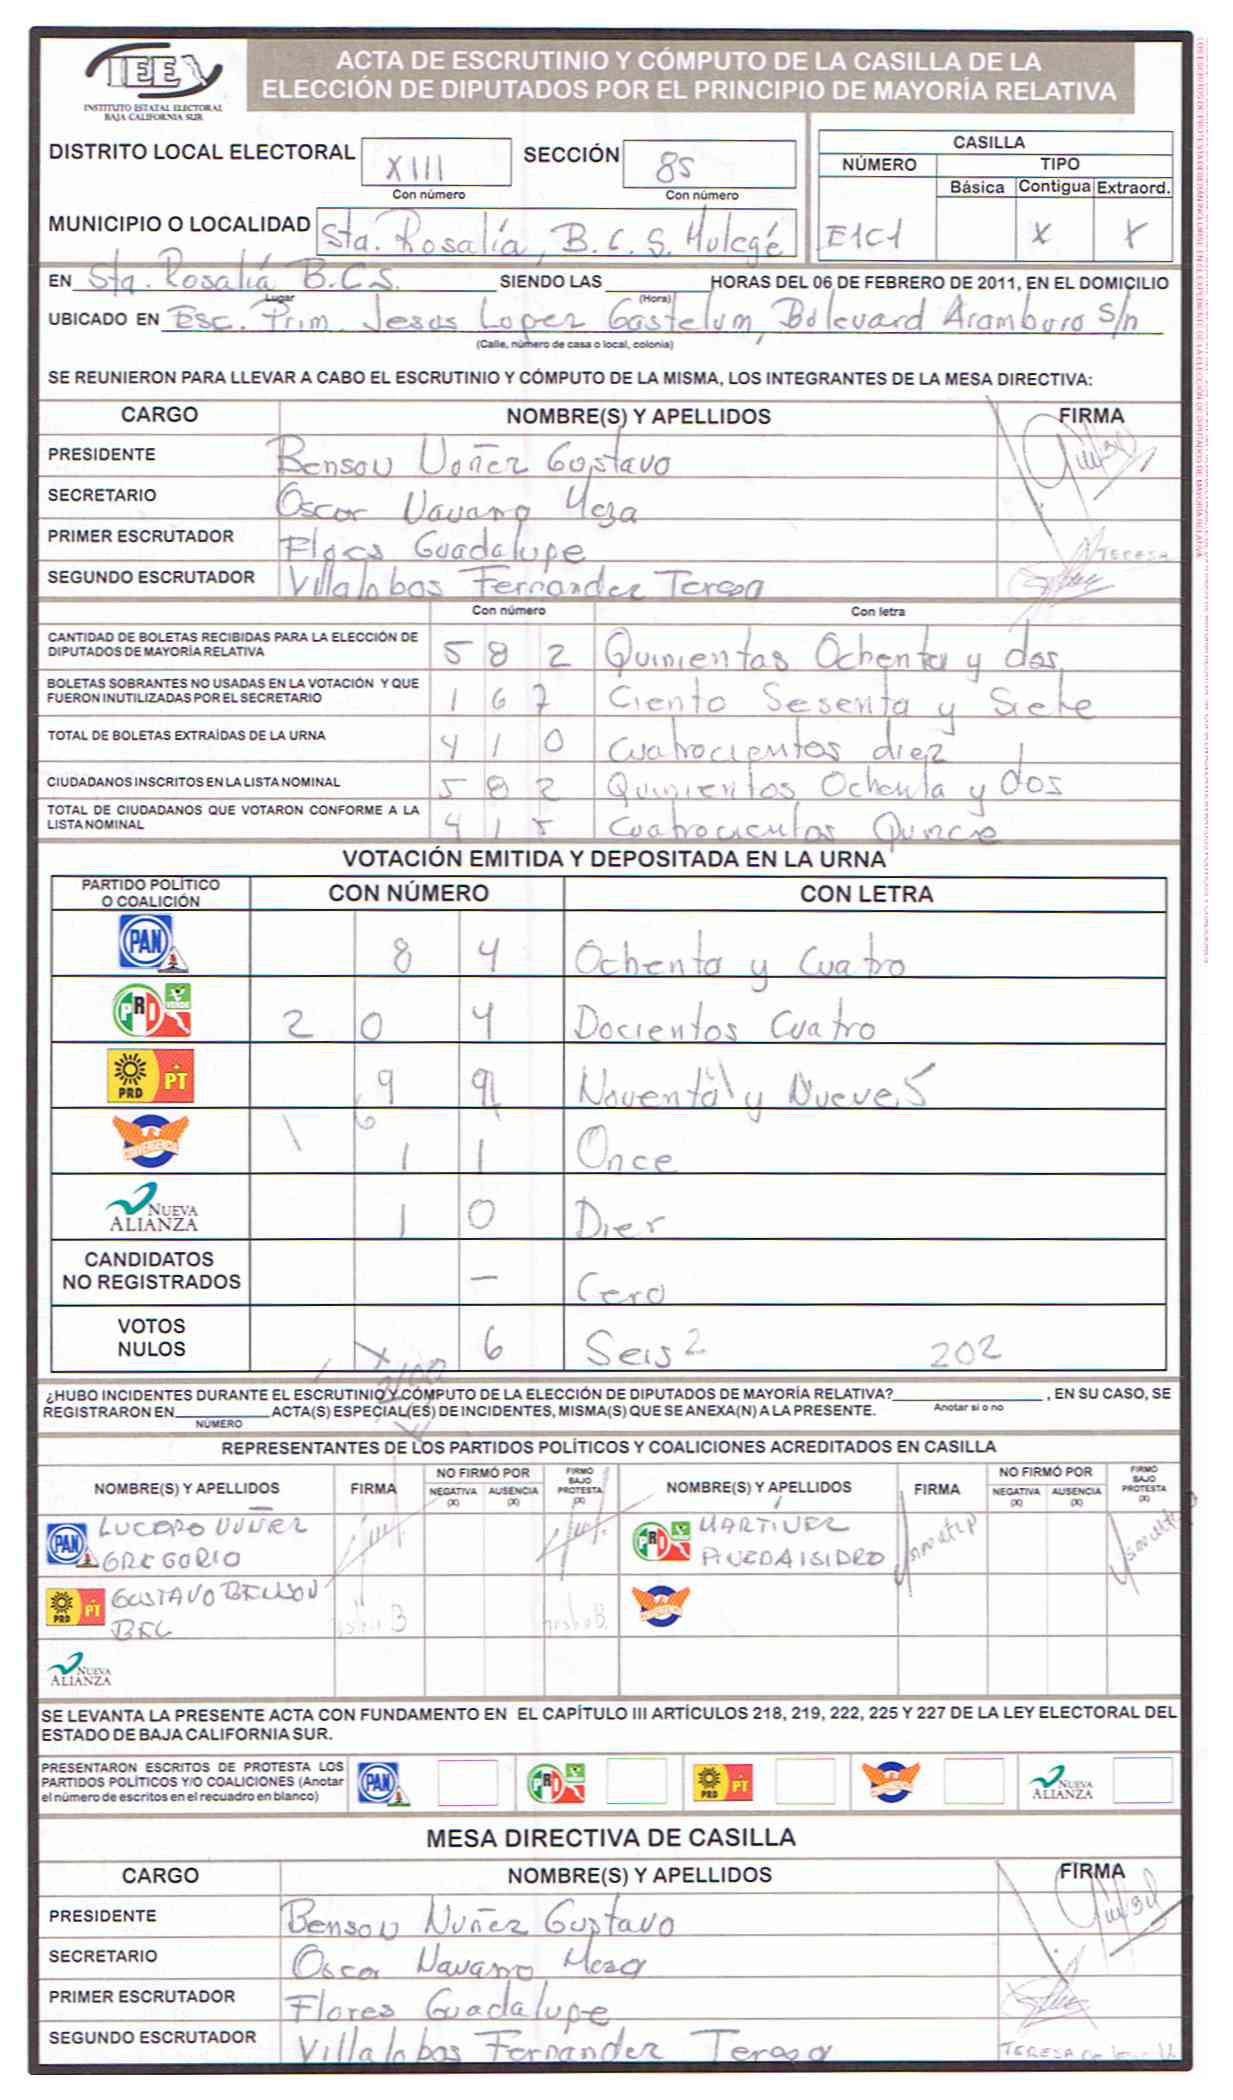 IEE
INSTITUTO ESTATAL ELECTORAL
BAJA CALIFORNIA SUR
ACTA DE ESCRUTINIO Y CÓMPUTO DE LA CASILLA DE LA
ELECCIÓN DE DIPUTADOS POR EL PRINCIPIO DE MAYORÍA RELATIVA
DISTRITO LOCAL ELECTORAL XIII SECCIÓN 85
Con número Con número
CASILLA
NÚMERO TIPO
Básica Contigua Extraord.
E1C1 X X
MUNICIPIO O LOCALIDAD Sta. Rosalía, B.C.S. Mulegé
EN Sta. Rosalía B.C.S. SIENDO LAS HORAS DEL 06 DE FEBRERO DE 2011, EN EL DOMICILIO
Lugar (Hora)
UBICADO EN Esc. Prim. Jesus Lopez Gastelum, Bolevard Aramburo s/n
(Calle, número de casa o local, colonia)
SE REUNIERON PARA LLEVAR A CABO EL ESCRUTINIO Y CÓMPUTO DE LA MISMA, LOS INTEGRANTES DE LA MESA DIRECTIVA:
CARGO NOMBRE(S) Y APELLIDOS FIRMA
PRESIDENTE Benson Nuñez Gustavo
SECRETARIO Oscar Navarro Meza
PRIMER ESCRUTADOR Flores Guadalupe TERESA
SEGUNDO ESCRUTADOR Villalobos Fernandez Teresa
Con número Con letra
CANTIDAD DE BOLETAS RECIBIDAS PARA LA ELECCIÓN DE
DIPUTADOS DE MAYORÍA RELATIVA 5 8 2 Quinientas Ochenta y dos
BOLETAS SOBRANTES NO USADAS EN LA VOTACIÓN Y QUE
FUERON INUTILIZADAS POR EL SECRETARIO 1 6 7 Ciento Sesenta y Siete
TOTAL DE BOLETAS EXTRAÍDAS DE LA URNA 4 1 0 Cuatrocientos diez
CIUDADANOS INSCRITOS EN LA LISTA NOMINAL 5 8 2 Quinientos Ochenta y dos
TOTAL DE CIUDADANOS QUE VOTARON CONFORME A LA
LISTA NOMINAL 4 1 5 Cuatrocientos Quince
VOTACIÓN EMITIDA Y DEPOSITADA EN LA URNA
PARTIDO POLÍTICO
O COALICIÓN CON NÚMERO CON LETRA
PAN 8 4 Ochenta y Cuatro
PRI VERDE 2 0 4 Docientos Cuatro
PRD PT 9 9 Noventa y Nueve
CONVERGENCIA 1 1 Once
NUEVA
ALIANZA 1 0 Diez
CANDIDATOS
NO REGISTRADOS — Cero
VOTOS
NULOS 6 Seis 2 202
¿HUBO INCIDENTES DURANTE EL ESCRUTINIO Y CÓMPUTO DE LA ELECCIÓN DE DIPUTADOS DE MAYORÍA RELATIVA? , EN SU CASO, SE
Anotar si o no
REGISTRARON EN ACTA(S) ESPECIAL(ES) DE INCIDENTES, MISMA(S) QUE SE ANEXA(N) A LA PRESENTE.
NÚMERO
REPRESENTANTES DE LOS PARTIDOS POLÍTICOS Y COALICIONES ACREDITADOS EN CASILLA
NOMBRE(S) Y APELLIDOS FIRMA NO FIRMÓ POR NEGATIVA (X) AUSENCIA (X) FIRMÓ BAJO PROTESTA (X) NOMBRE(S) Y APELLIDOS FIRMA NO FIRMÓ POR NEGATIVA (X) AUSENCIA (X) FIRMÓ BAJO PROTESTA (X)
PAN LUCERO NUÑEZ PRI MARTINEZ
GREGORIO PINEDA ISIDRO
PRD PT GUSTAVO BENSON CONVERGENCIA
NUEVA
ALIANZA
SE LEVANTA LA PRESENTE ACTA CON FUNDAMENTO EN EL CAPÍTULO III ARTÍCULOS 218, 219, 222, 225 Y 227 DE LA LEY ELECTORAL DEL
ESTADO DE BAJA CALIFORNIA SUR.
PRESENTARON ESCRITOS DE PROTESTA LOS
PARTIDOS POLÍTICOS Y/O COALICIONES (Anotar
el número de escritos en el recuadro en blanco) PAN PRI PRD PT CONVERGENCIA NUEVA ALIANZA
MESA DIRECTIVA DE CASILLA
CARGO NOMBRE(S) Y APELLIDOS FIRMA
PRESIDENTE Benson Nuñez Gustavo
SECRETARIO Oscar Navarro Meza
PRIMER ESCRUTADOR Flores Guadalupe
SEGUNDO ESCRUTADOR Villalobos Fernandez Teresa TERESA DE